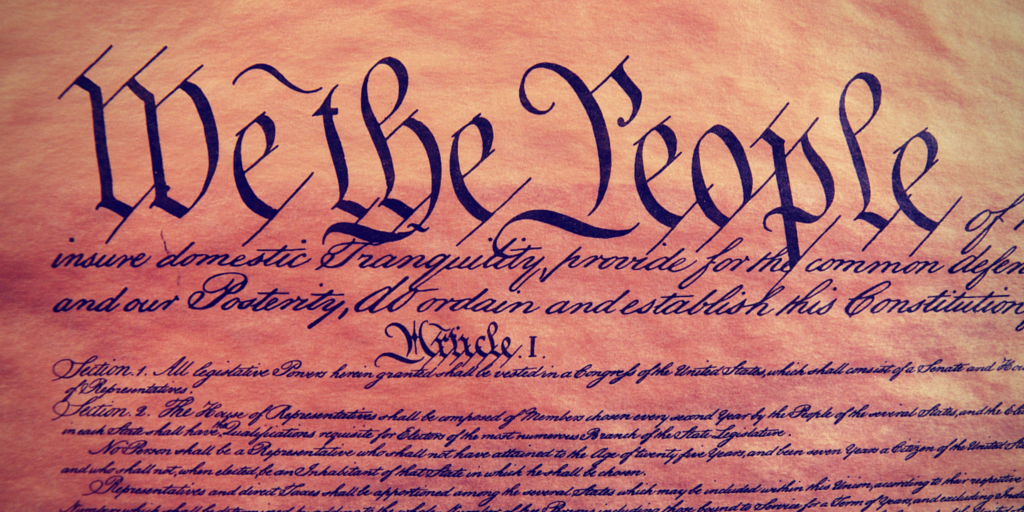 We the People of
insure domestic Tranquility, provide for the common defen
and our Posterity, do ordain and establish this Constitution
Article. I.
Section. 1. All legislative Powers herein granted shall be vested in a Congress of the United States, which shall consist of a Senate and Hou
of Representatives.
Section. 2. The House of Representatives shall be composed of Members chosen every second Year by the People of the several States, and the Elec
in each State shall have the Qualifications requisite for Electors of the most numerous Branch of the State Legislature.
No Person shall be a Representative who shall not have attained to the Age of twenty five Years, and been seven Years a Citizen of the United Sta
and who shall not, when elected, be an Inhabitant of that State in which he shall be chosen.
Representatives and direct Taxes shall be apportioned among the several States which may be included within this Union, according to their respective
Numbers, which shall be determined by adding to the whole Number of free Persons, including those bound to Service for a Term of Years, and excluding Indi